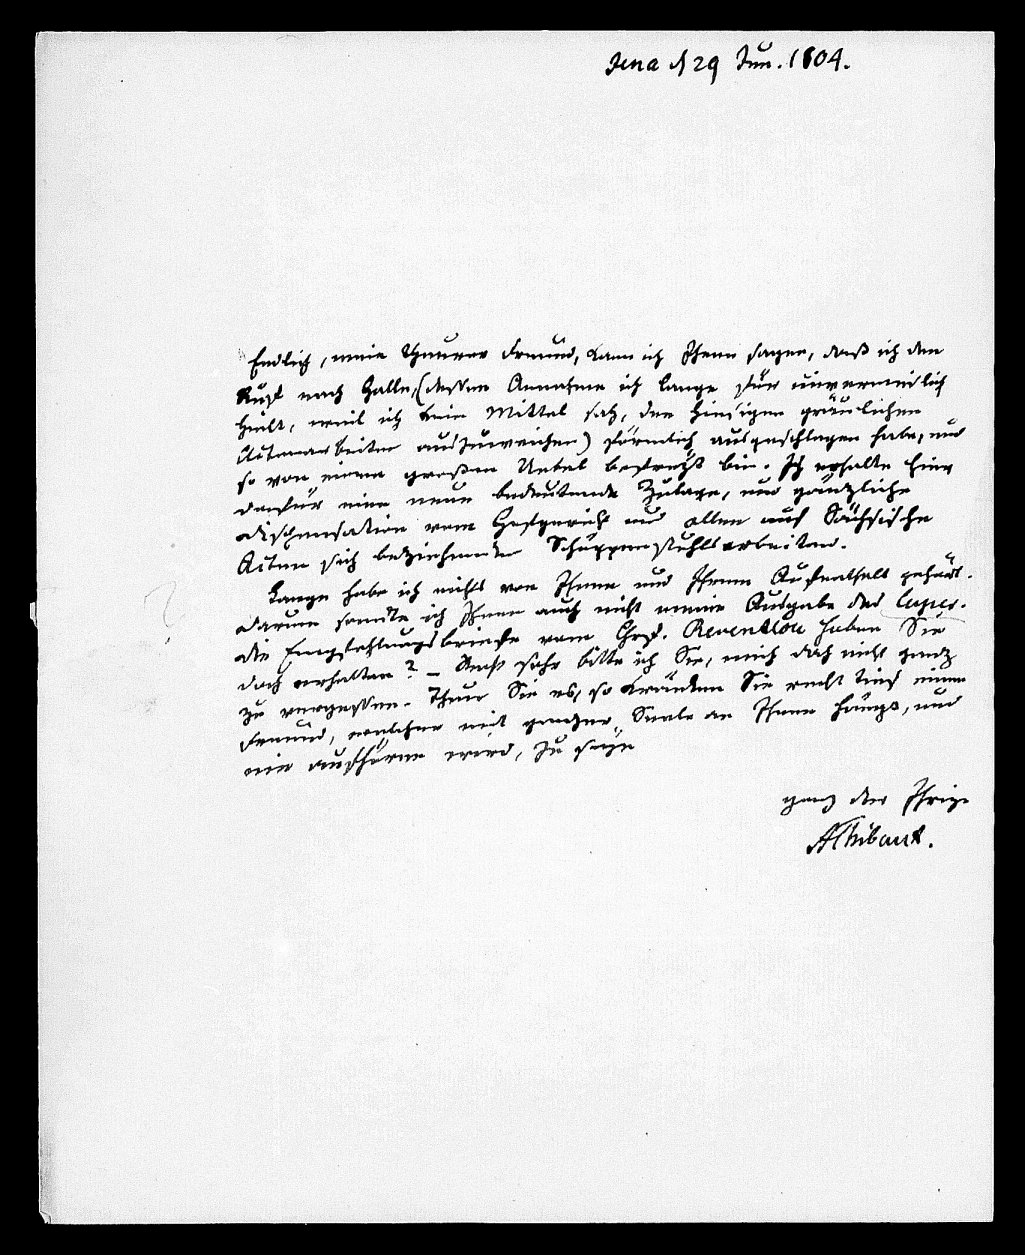 Jena d 29 Jun. 1804.
Endlich, mein theurer Freund, kann ich Ihnen sagen, daß ich den
Ruf nach Halle, (dessen Annahme ich lange für unvermeidlich
hielt, weil ich kein Mittel sah, den hiesigen gräulichen
Actenarbeiten auszuweichen) förmlich ausgeschlagen habe, und
so von einem großen Uebel befreyt bin. Ich erhalte hier
dafür eine neue bedeutende Zulage, und gänzliche
Dispensation vom Hofgericht und allen auf Sächsische
Acten sich beziehenden Schöppenstuhlsarbeiten.
Lange habe ich nichts von Ihnen und Ihrem Aufenthalt gehört.
Darum sandte ich Ihnen auch nicht meine Ausgabe des Cuper.
Die Empfehlungsbriefe vom Gr. Reventlou haben Sie
doch erhalten? – sehr bitte ich Sie, mich doch nicht ganz
zu vergessen. Thun Sie es, so kränken Sie recht tief einen
Freund, welcher mit ganzer Seele an Ihnen hängt, und
nie aufhören wird, zu seyn
ganz der Ihrige
AThibaut.